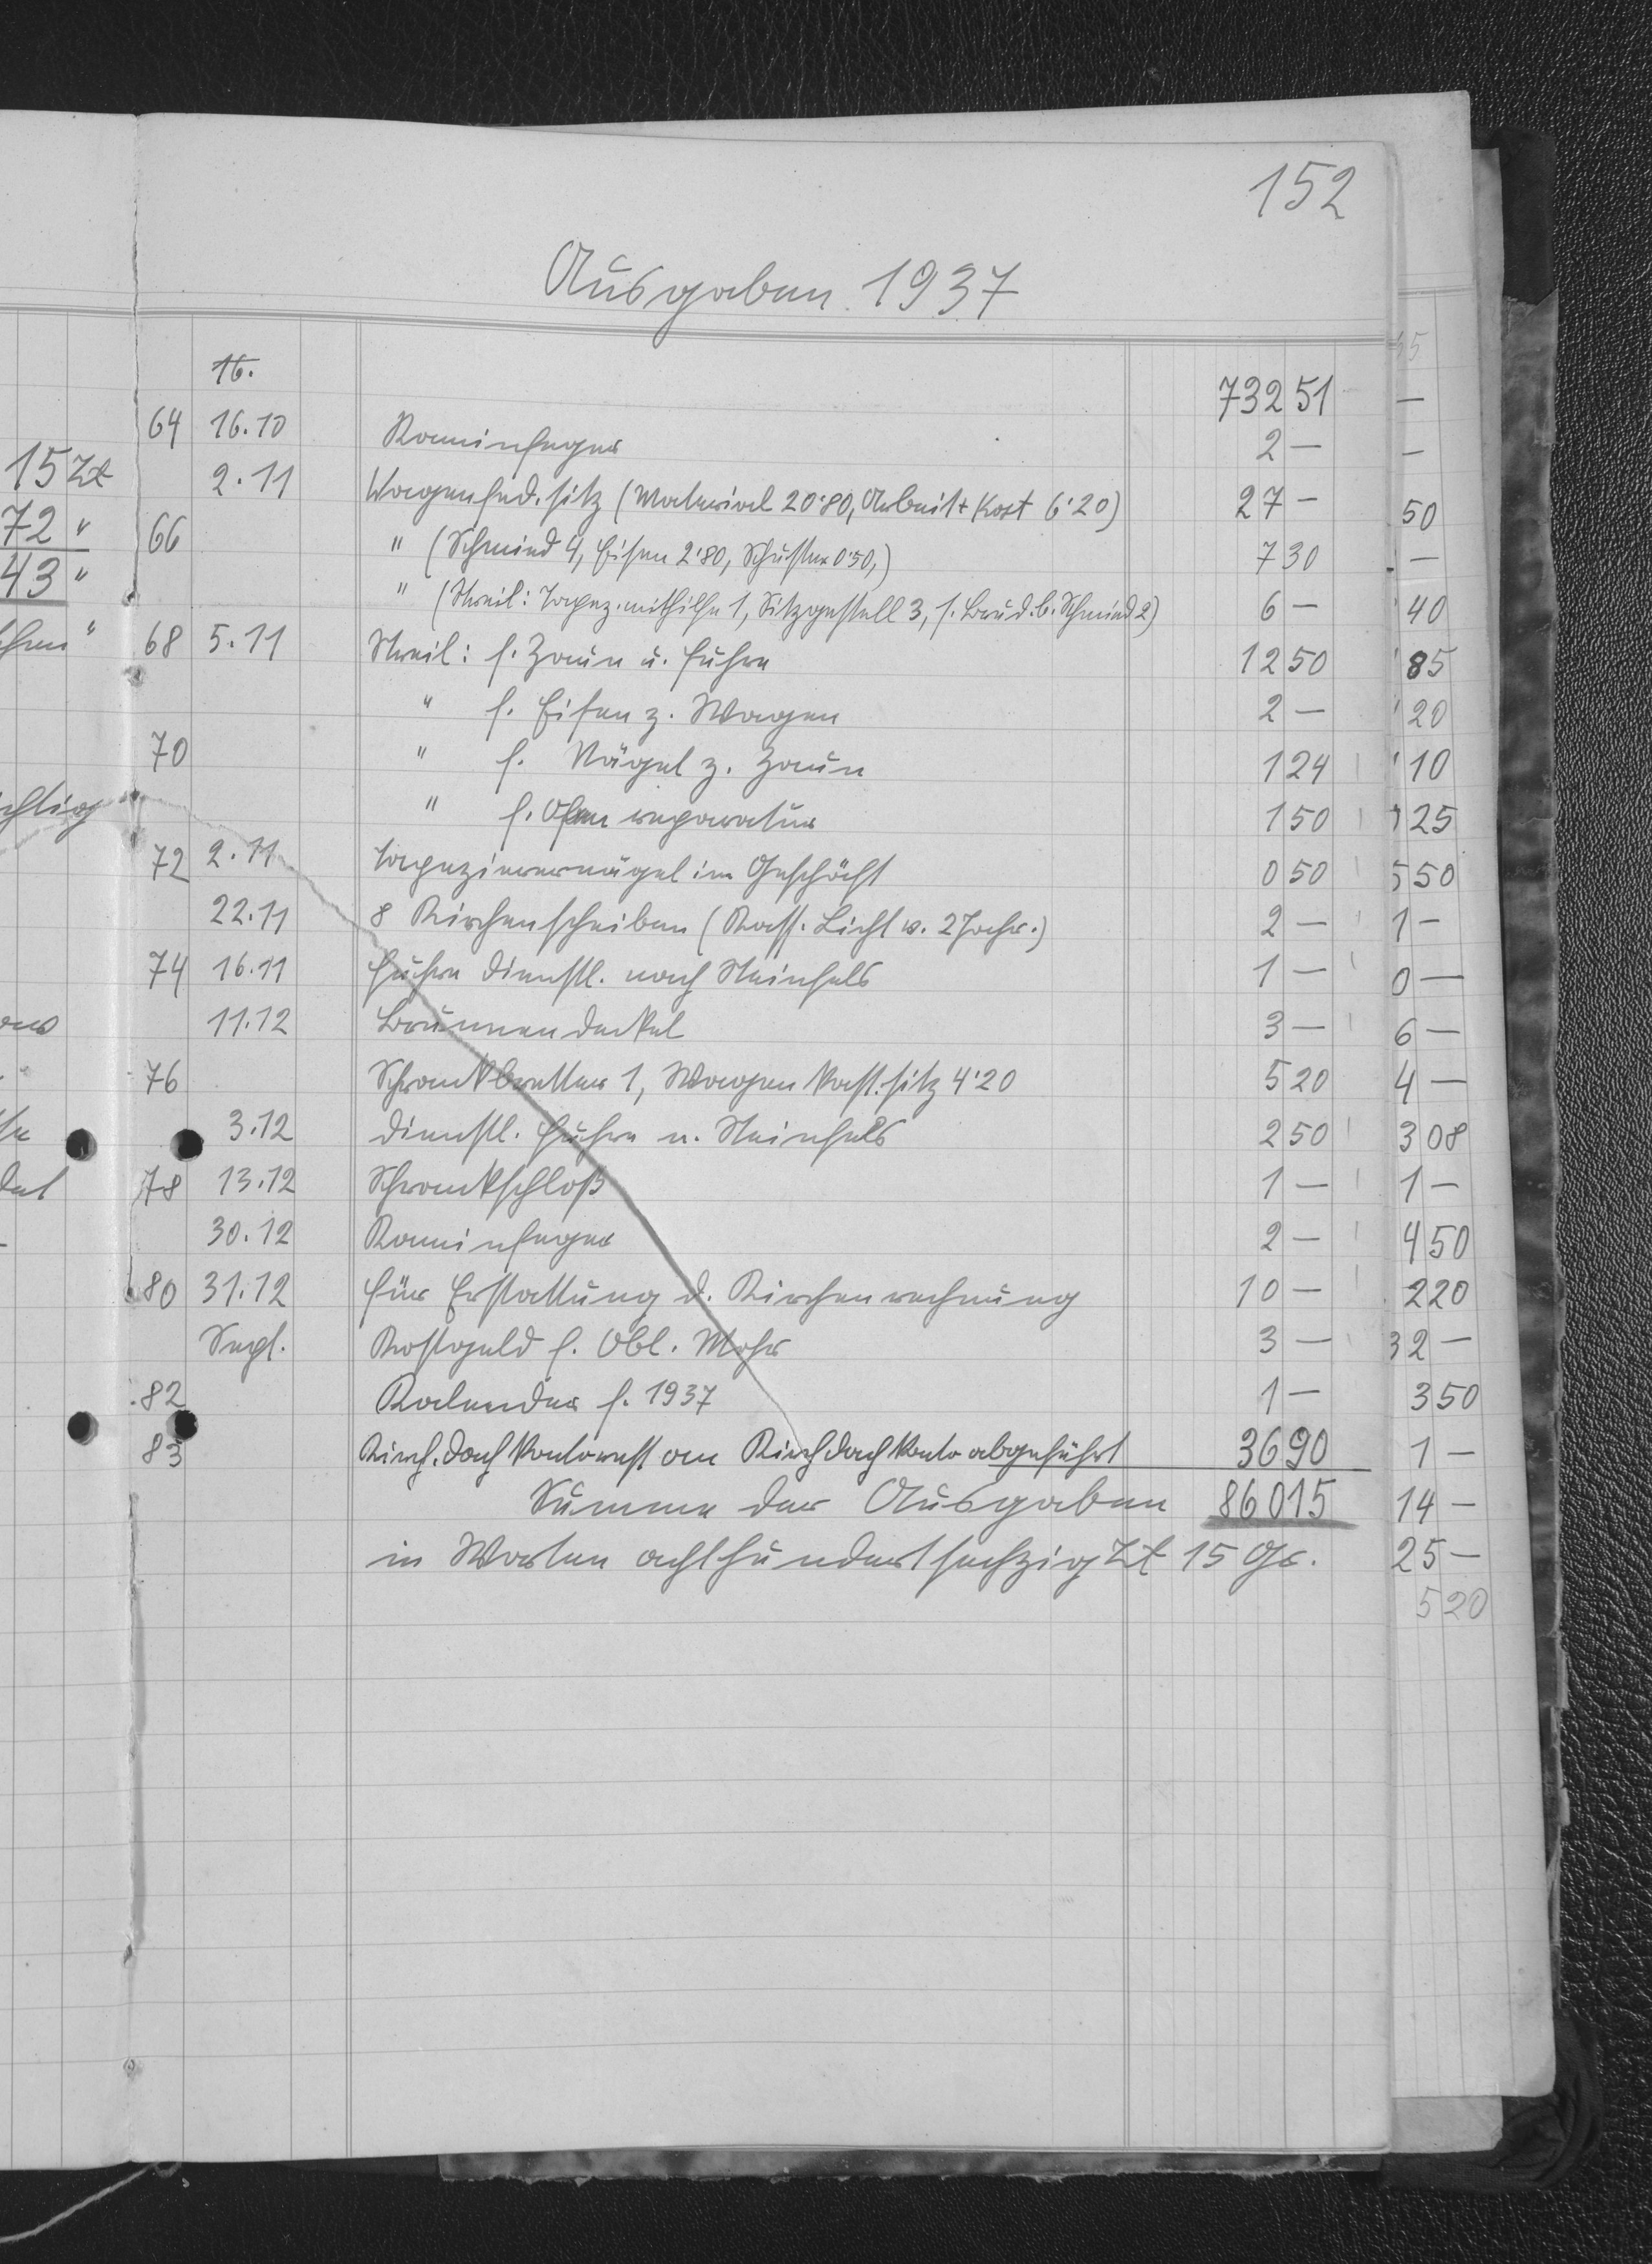 152
Ausgaben 1937
16.
732 51
64 16.10 Kaminfeger 2 —
2.11 Wagenfed. sitz (Material 20'80, Arbeit + Kost 6'20) 27 —
66 " (Schmied 4, Eisen 2'80, Schuster 0'50,) 7 30
" (Streil: Tapez. mithilfe 1, Sitzgestell 3, f. Brud. b. Schmied 2) 6 —
68 5.11 Streil: f. Zaun u. Fuhre 12 50
" f. Eisen z. Wagen 2 —
70 " f. Nägel z. Zaun 1 24
" f. Ofen reparatur 1 50
72 2.11 Tapezierernägel im Geschäft 0 50
22.11 8 Kirchenscheiben (Kass. Licht v. 2 Jahr.) 2 —
74 16.11 Fuhre dienstl. nach Steinfels 1 —
11.12 Brunnen deckel 3 —
76 Schrankbretter 1, Wagen kast. sitz 4'20 5 20
3.12 dienstl. Fuhre n. Steinfels 2 50
78 13.12 Schrankschloß 1 —
30.12 Kaminfeger 2 —
80 31.12 Für Erstattung d. Kirchenrechnung 10 —
Sept. Kostgeld f. Obl. Mohr 3 —
82 Kalender f. 1937 1 —
83 Kirch. dach kontorest am Kirchdach konto abgeführt 36 90
Summe der Ausgaben 860 15
in Worten achthundertsechzig Zł 15 Gr.
15 Zł
72 "
43 "
—
—
50
—
40
85
20
10
25
5 50
1 —
0 —
6 —
4 —
3 08
1 —
4 50
2 20
32 —
3 50
1 —
14 —
25 —
5 20